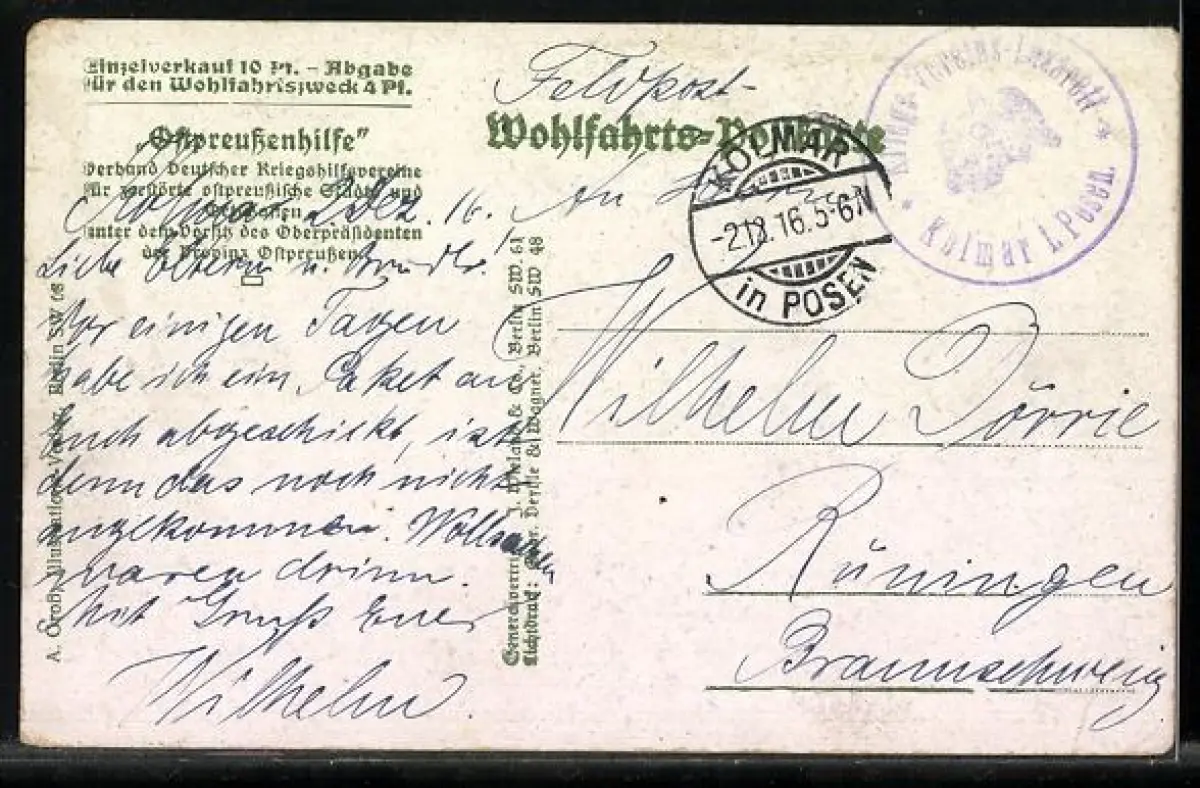 Einzelverkauf 10 Pf. – Abgabe
für den Wohlfahrtszweck 4 Pf.
„Ostpreußenhilfe"
Verband Deutscher Kriegshilfsvereine
für zerstörte ostpreußische Städte und
Ortschaften
unter dem Vorsitz des Oberpräsidenten
der Provinz Ostpreußen.
Kolmar, Dez. 16.
Liebe Eltern u. Bruder!
Vor einigen Tagen
habe ich ein Paket an
euch abgeschickt, ist
denn das noch nicht
angekommen. Wollsachen
waren drinn.
Mit Gruß Euer
Wilhelm.
A. Groß, Illustrations-Verlag, Berlin SW 68
Generalvertrieb: & Co., Berlin SW. 61
Lichtdruck: & Wagner, Berlin SW 48
Feldpost-
Wohlfahrts-Postkarte
An
KOLMAR
-2.12.16.5-6N
in POSEN
Vereins-Lazarett
* Kolmar i. Posen. *
Wilhelm Dörrie
Rüningen
Braunschweig